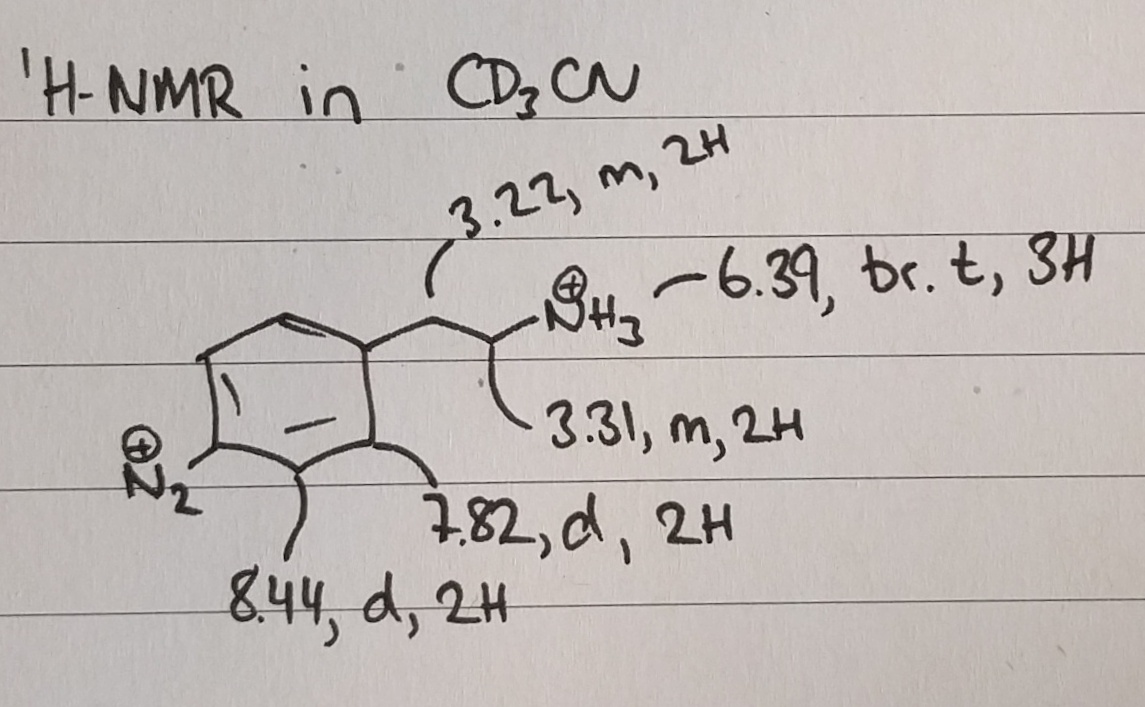 ¹H-NMR in CD₃CN
3.22, m, 2H
⊕NH₃
6.39, br. t, 3H
3.31, m, 2H
⊕N₂
7.82, d, 2H
8.44, d, 2H